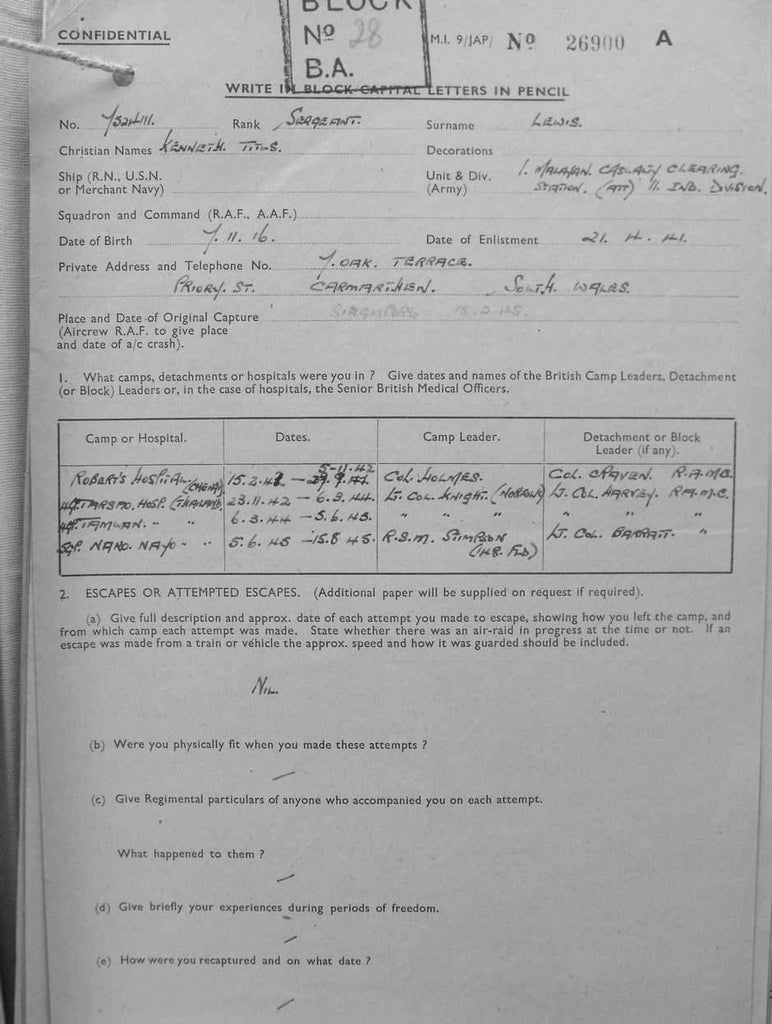 BLOCK
CONFIDENTIAL
Nº 28
M.I. 9/JAP/ Nº 26900 A
B.A.
WRITE IN BLOCK CAPITAL LETTERS IN PENCIL
No. Rank SERGEANT. Surname LEWIS.
Christian Names KENNETH. TITUS. Decorations
Ship (R.N., U.S.N. or Merchant Navy) Unit & Div. (Army) 1. MALAYAN. CASUALTY CLEARING.
STATION. (ATT) 11. IND. DIVISION.
Squadron and Command (R.A.F., A.A.F.)
Date of Birth 7.11.16. Date of Enlistment 21. 4. 41.
Private Address and Telephone No. 7. OAK. TERRACE.
PRIORY. ST. CARMARTHEN. SOUTH. WALES.
Place and Date of Original Capture SINGAPORE 15.2.45.
(Aircrew R.A.F. to give place
and date of a/c crash).
1. What camps, detachments or hospitals were you in ? Give dates and names of the British Camp Leaders, Detachment
(or Block) Leaders or, in the case of hospitals, the Senior British Medical Officers.
Camp or Hospital. Dates. Camp Leader. Detachment or Block Leader (if any).
5-11.42
ROBERTS HOSPITAL (CHANGI) 15.2.42 – COL. HOLMES. COL. CRAVEN. R.A.M.C.
HOSP. (THAILAND) 23.11.42 – 6.3.44. LT. COL. KNIGHT. (NORFOLK) LT. COL. HARVEY. R.A.M.C.
TAMUAN. " " 6.3.44 – 5.6.45. " " " " " "
NAKO. NAYO " " 5.6.45 – 15.8.45. R.S.M. STIMPSON LT. COL. BARRATT. "
2. ESCAPES OR ATTEMPTED ESCAPES. (Additional paper will be supplied on request if required).
(a) Give full description and approx. date of each attempt you made to escape, showing how you left the camp, and
from which camp each attempt was made. State whether there was an air-raid in progress at the time or not. If an
escape was made from a train or vehicle the approx. speed and how it was guarded should be included.
NIL.
(b) Were you physically fit when you made these attempts ?
(c) Give Regimental particulars of anyone who accompanied you on each attempt.
What happened to them ?
(d) Give briefly your experiences during periods of freedom.
(e) How were you recaptured and on what date ?